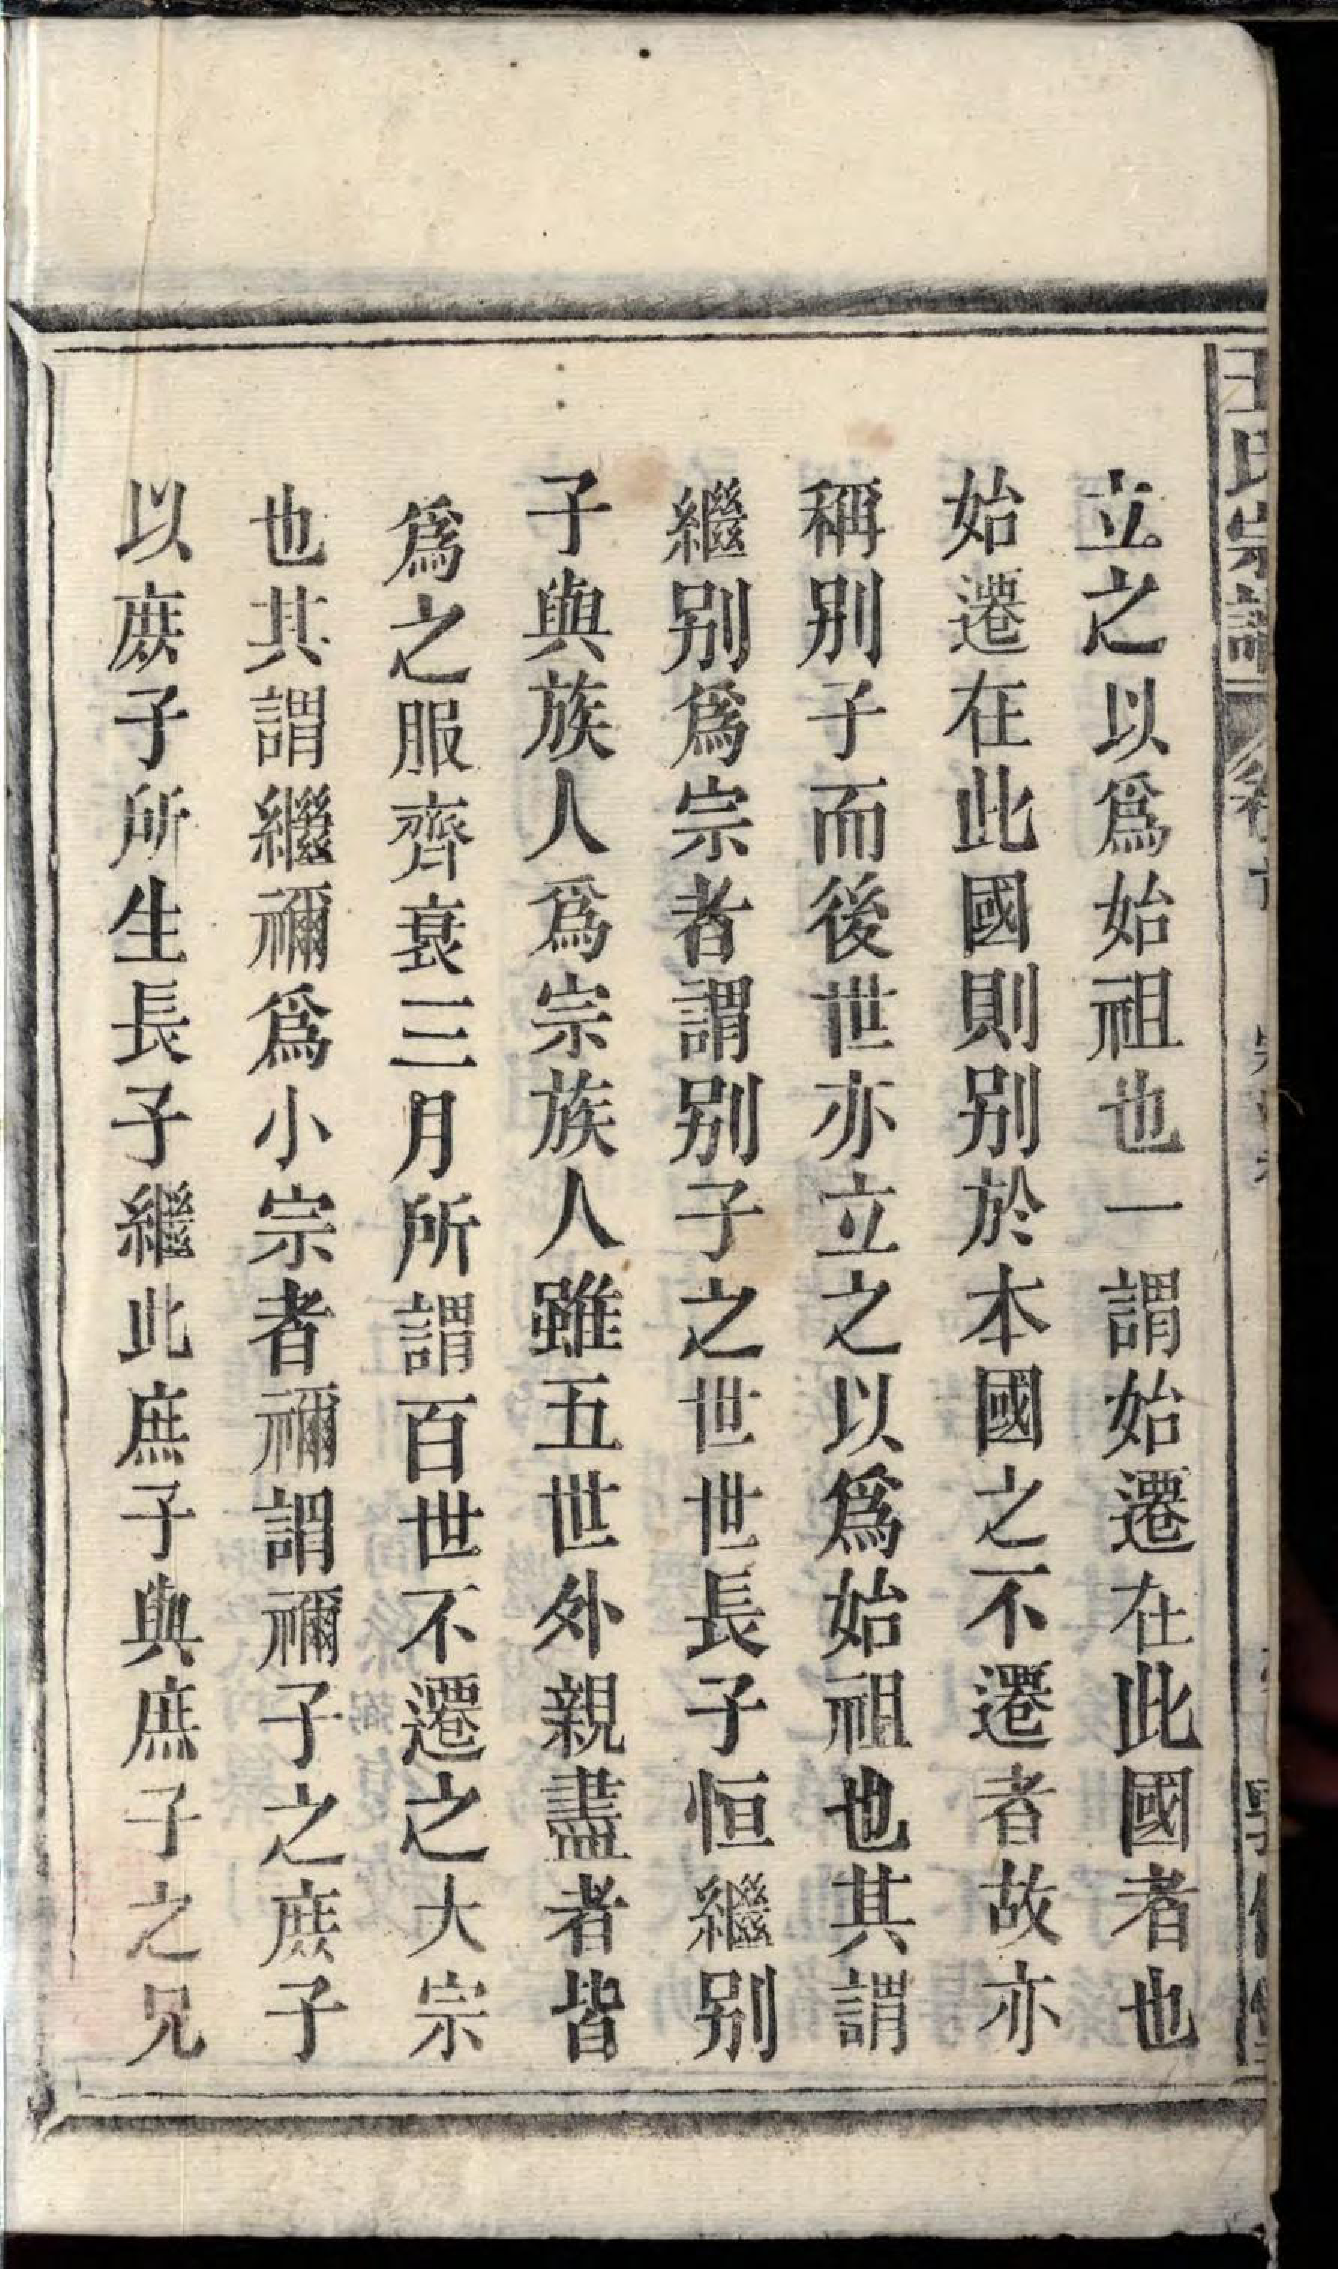 王氏宗譜
立之以爲始祖也一謂始遷在此國者也
始遷在此國則别於本國之不遷者故亦
稱别子而後世亦立之以爲始祖也其謂
繼别爲宗者謂别子之世世長子恒繼别
子與族人爲宗族人雖五世外親盡者皆
爲之服齊衰三月所謂百世不遷之大宗
也其謂繼禰爲小宗者禰謂禰子之庻子
以庻子所生長子繼此庶子與庶子之兄